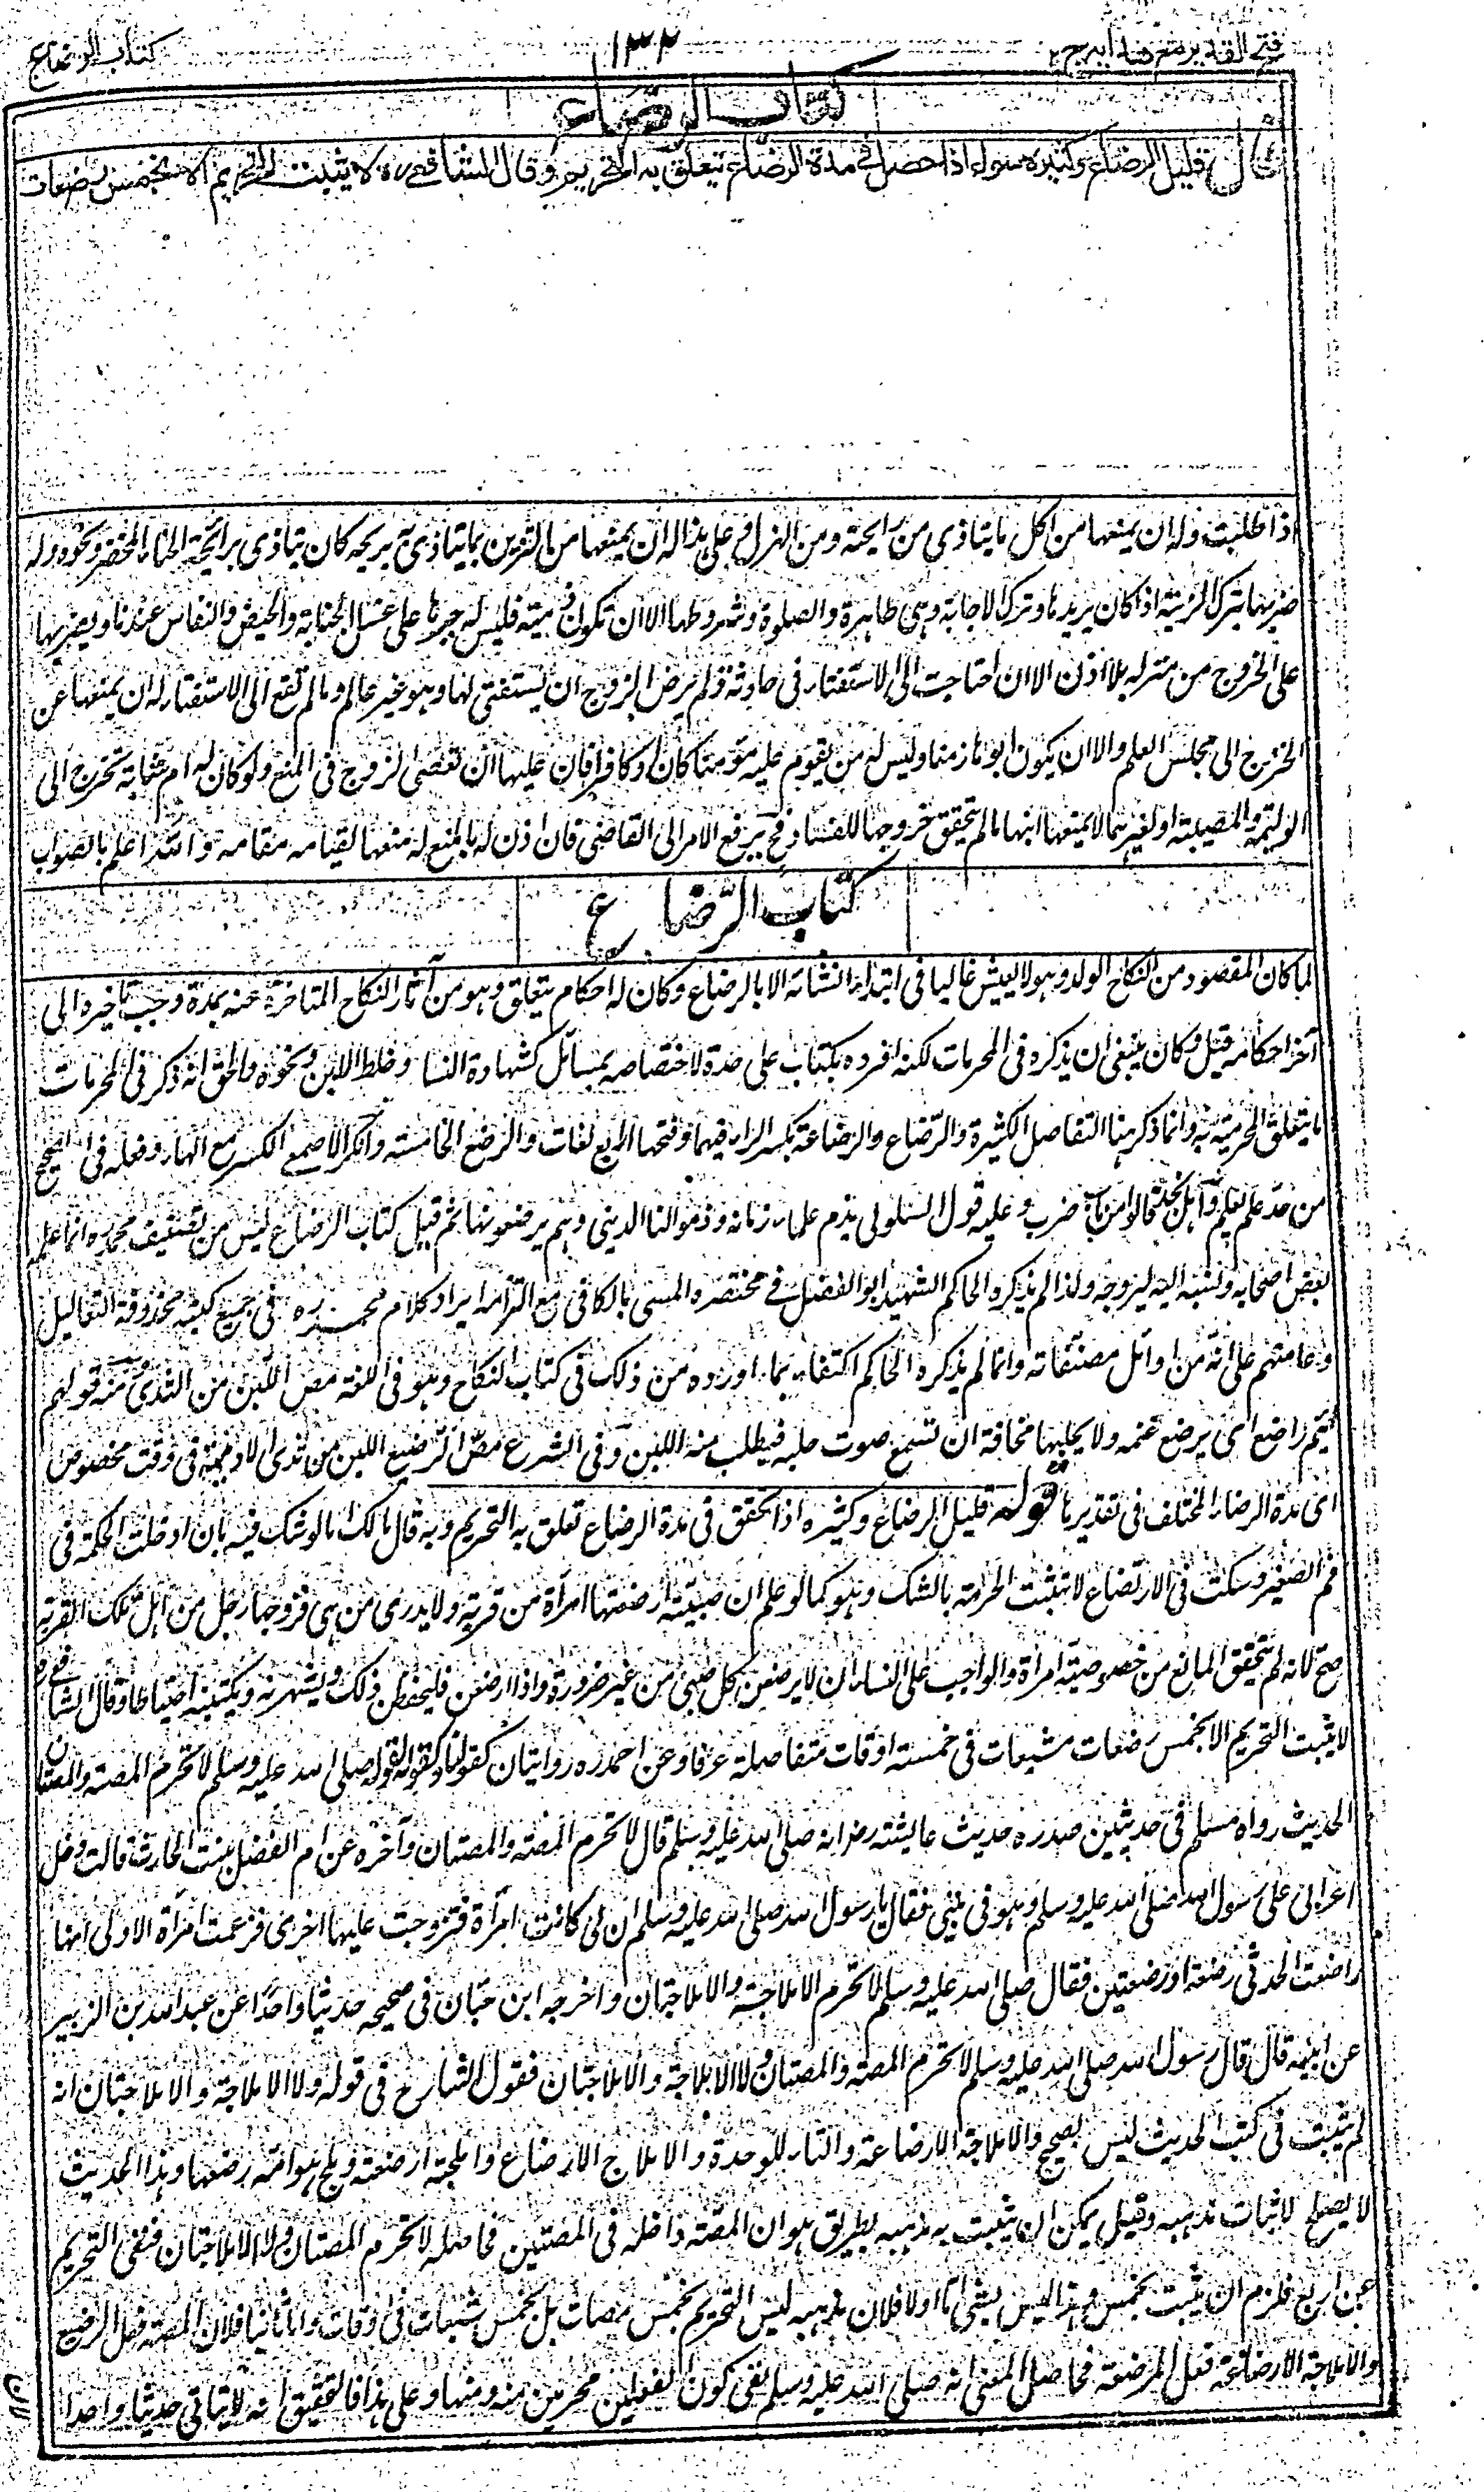 فتح القدير مع هدايه ج ٢
١٣٢
كتاب الرضاع
كتاب الرضاع
قال قليل الرضاع وكثيره سواء اذا حصل في مدة الرضاع تتعلق به التحريم وقال الشافعي ره لا يثبت التحريم الا بخمس رضعات
اذا طلبت وله ان يمنعها من اكل ما يتاذى من رايحته ومن الغزل وعلى هذا له ان يمنعها من التزين بما يتاذى بريحه كان يتاذى برائحة الحناء المخضر ونحوه وله
ضربها بترك الزينة اذا كان يريدها وترك الاجابة وهى طاهرة والصلوة وشروطها الا ان تكون ذمية فليس له جبرها على غسل الجنابة والحيض والنفاس عندنا ويضربها
على الخروج من منزله بلا اذن الا ان احتاجت الى الاستفتاء فى حادثة ولم يرض الزوج ان يستفتى لها وهو غير عالم وما لم تقع الى الاستفتاء له ان يمنعها عن
الخروج الى مجلس العلم والا ان يكون ابوها زمنا وليس له من يقوم عليه مؤمنا كان او كافرا فان عليها ان تعصى الزوج فى المنع ولو كان له ام شابة تخرج الى
الوليمة والمصيبة او لغيرهما لا يمنعها ابنها ما لم يتحقق خروجها للفساد فح يرفع الامر الى القاضى فان اذن له بالمنع له منعها لقيامه مقامه والله اعلم بالصواب
كتاب الرضاع
لما كان المقصود من النكاح الولد وهو لا يعيش غالبا فى ابتداء انشائه الا بالرضاع وكان له احكام تتعلق وهو من آثار النكاح المتاخرة عنه بمدة وجب تاخيره الى
آخر احكامه قيل وكان ينبغى ان يذكره فى المحرمات لكنه افرده بكتاب على حدة لاختصاصه بمسائل كشهادة النساء وخلط اللبن ونحوه والحق انه ذكر فى المحرمات
ما يتعلق المحرمية به وانما ذكر هنا التفاصيل الكثيرة والرضاع والرضاعة بكسر الراء فيهما وفتحها اربع لغات والرضع الخامسة وانكر الاصمعى الكسر مع الهاء وفعله فى الفصيح
من حد علم يعلم واهل نجد قالوا من باب ضرب وعليه قول السلولى يذم علماء زمانه وذموا لنا الدنيا وهم يرضعونها ثم قيل كتاب الرضاع ليس من تصنيف محمد ره انما عمله
بعض اصحابه ونسبه اليه ليروجه ولذا لم يذكره الحاكم الشهيد ابو الفضل فى مختصره المسمى بالكافى مع التزامه ايراد كلام محمد ره فى جميع كتبه محذوفة التعاليل
وعامتهم على انه من اوائل مصنفاته وانما لم يذكره الحاكم اكتفاء بما اورده من ذلك فى كتاب النكاح وهو فى اللغة مص اللبن من الثدى ومنه قولهم
لئيم راضع اى يرضع غنمه ولا يحلبها مخافة ان تسمع صوت حلبه فيطلب منه اللبن وفى الشرع مص الرضيع اللبن من ثدى الآدمية فى وقت مخصوص
اى مدة الرضاع المختلف فى تقديرها قوله قليل الرضاع وكثيره اذا تحقق فى مدة الرضاع تعلق به التحريم وبه قال مالك اما لو شك فيه بان ادخلت الحلمة فى
فم الصغير وسكت فى الارتضاع لا تثبت الحرمة بالشك وهو كما لو علم ان صبية ارضعتها امرأة من قرية ولا يدرى من هى فتزوجها رجل من اهل تلك القرية
صح لانه لم يتحقق المانع من خصوصية امرأة والواجب على النساء ان لا يرضعن كل صبى من غير ضرورة واذا ارضعن فليحفظن ذلك ويشهرنه ويكتبنه احتياطا وقال الشافعى ره
لا يثبت التحريم الا بخمس رضعات مشبعات فى خمسة اوقات متفاصلة عرفا وعن احمد ره روايتان كقولنا وكقوله لقوله صلى الله عليه وسلم لا تحرم المصة والمصتان
الحديث رواه مسلم فى حديثين صدره حديث عايشة رض انه صلى الله عليه وسلم قال لا تحرم المصة والمصتان وآخره عن ام الفضل بنت الحارث قالت دخل
اعرابى على رسول الله صلى الله عليه وسلم وهو فى بيتى فقال يا رسول الله صلى الله عليه وسلم ان لى كانت امرأة فتزوجت عليها اخرى فزعمت امرأة الاولى انها
ارضعت الحدثى رضعة او رضعتين فقال صلى الله عليه وسلم لا تحرم الاملاجة والاملاجتان واخرجه ابن حبان فى صحيحه حديثا واحدا عن عبد الله بن الزبير
عن ابيه قال قال رسول الله صلى الله عليه وسلم لا تحرم المصة والمصتان ولا الاملاجة والاملاجتان فقول الشارح فى قوله ولا الاملاجة والاملاجتان انه
لم يثبت فى كتب الحديث ليس بصحيح والاملاجة الارضاعة والتاء للوحدة والاملاج الارضاع واملجته ارضعته وملج هو امه رضعها وهذا الحديث
لا يصلح لاثبات مذهبه وقيل يمكن ان يثبت به مذهبه بطريق هو ان المصة داخلة فى المصتين فحاصله لا تحرم المصتان ولا الاملاجتان فنفى التحريم
عن اربع فلزم ان يثبت بخمس وهذا ليس بشى اما اولا فلان مذهبه ليس التحريم بخمس مصات بل بخمس شبعات فى اوقات واما ثانيا فلان المصة فعل الرضيع
والاملاجة الارضاعة فعل المرضعة فحاصل المعنى انه صلى الله عليه وسلم نفى كون الفعلين محرمين منه ومنها وعلى هذا فالتحقيق انه لا يتاتى حديثا واحدا